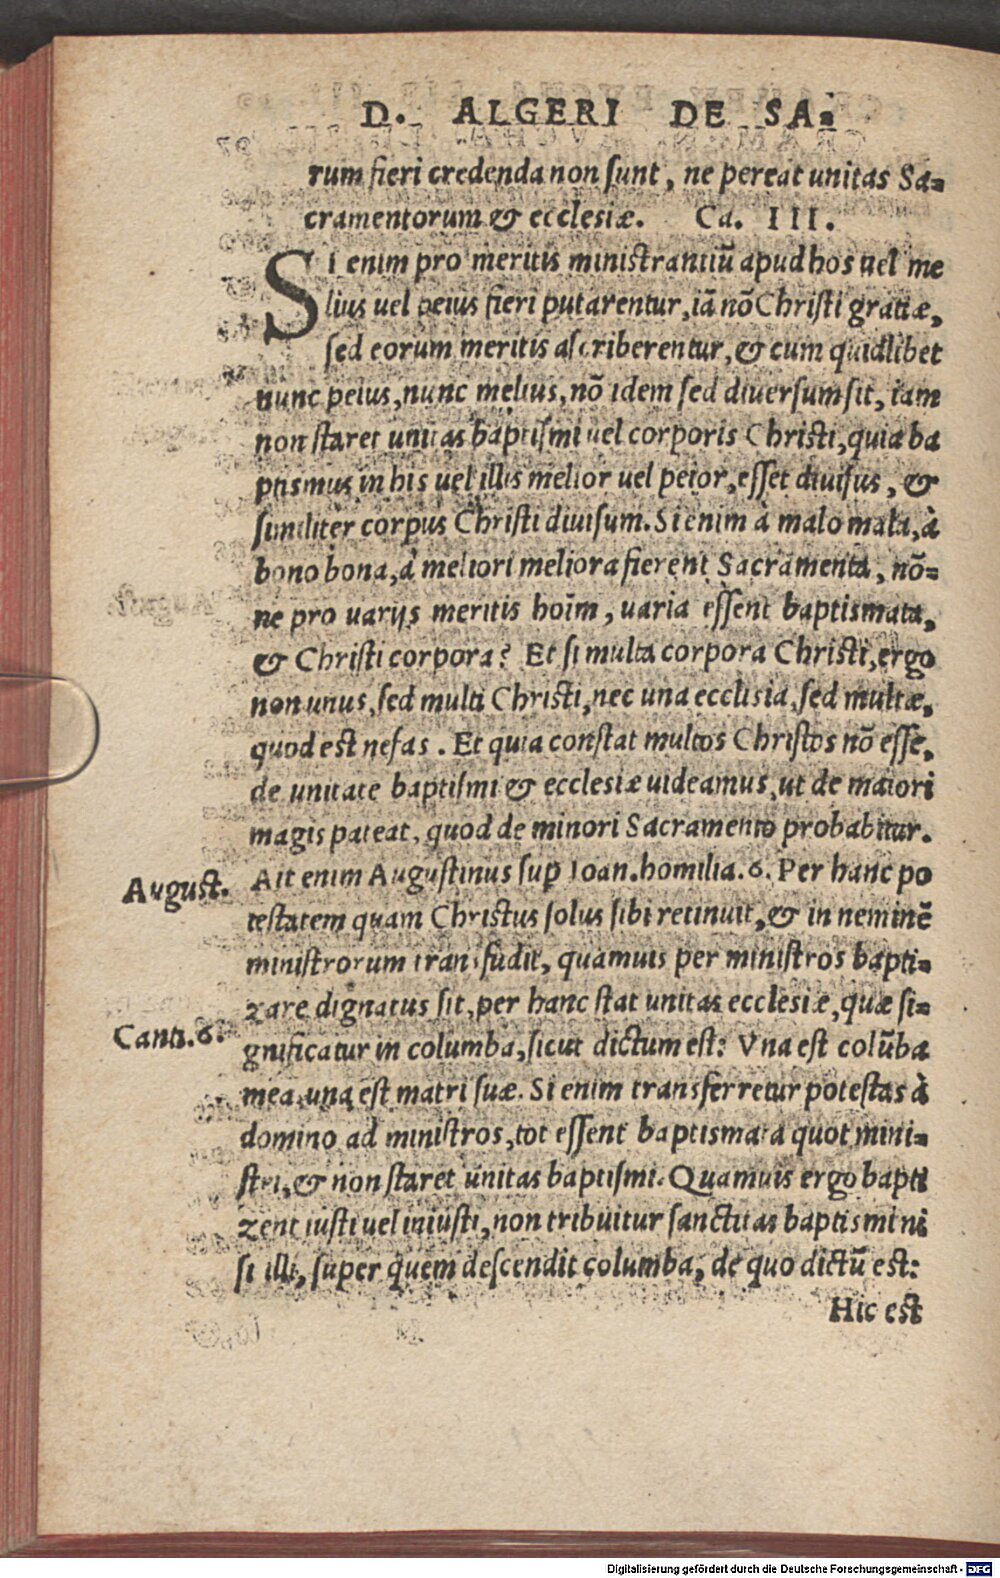 D. ALGERI DE SA-
rum fieri credenda non sunt, ne pereat unitas Sa-
cramentorum & ecclesiæ. Ca. III.
SI enim pro meritis ministrantiũ apud hos uel me
lius uel peius fieri putarentur, iã nõ Christi gratiæ,
sed eorum meritis ascriberentur, & cum quidlibet
nunc peius, nunc melius, nõ idem sed diuersum sit, iam
non staret unitas baptismi uel corporis Christi, quia ba
ptismus in his uel illis melior uel peior, esset diuisus, &
similiter corpus Christi diuisum. Si enim à malo mala, à
bono bona, à meliori meliora fierent Sacramenta, nõ-
ne pro uarijs meritis hoīm, uaria essent baptismata,
& Christi corpora? Et si multa corpora Christi, ergo
non unus, sed multi Christi, nec una ecclisia, sed multæ,
quod est nefas. Et quia constat multos Christos nõ esse,
de unitate baptismi & ecclesiæ uideamus, ut de maiori
magis pateat, quod de minori Sacramento probabitur.
August. Ait enim Augustinus sup Ioan. homilia. 6. Per hanc po
testatem quam Christus solus sibi retinuit, & in neminẽ
ministrorum transfudit, quamuis per ministros bapti-
zare dignatus sit, per hanc stat unitas ecclesiæ, quæ si-
Canti. 6. gnificatur in columba, sicut dictum est: Vna est colũba
mea, una est matri suæ. Si enim transferretur potestas à
domino ad ministros, tot essent baptismata quot mini-
stri, & non staret unitas baptismi. Quamuis ergo bapti
zent iusti uel iniusti, non tribuitur sanctitas baptismi ni
si illi, super quem descendit columba, de quo dictũ est:
Hic est
Digitalisierung gefördert durch die Deutsche Forschungsgemeinschaft - DFG